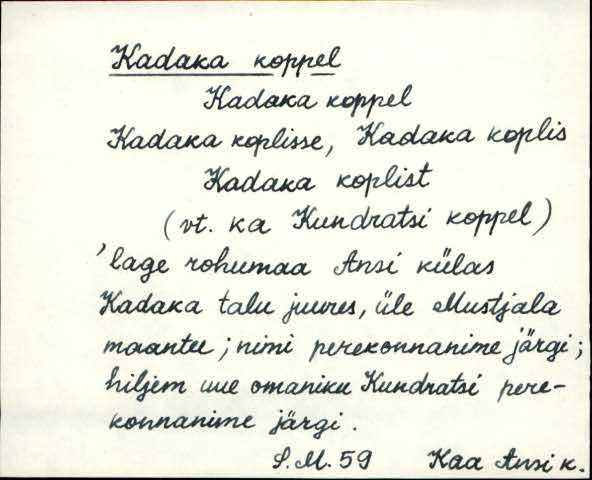 Kadaka koppel
Kadaka koppel
Kadaka koplisse, Kadaka koplis
Kadaka koplist
(vt. ka Kundratsi koppel)
'lage rohumaa Ansi külas
Kadaka talu juures, üle Mustjala
maantee; nimi perekonnanime järgi;
hiljem uue omaniku Kundratsi pere-
konnanime järgi.
S.M. 59 Kaa Ansi k.